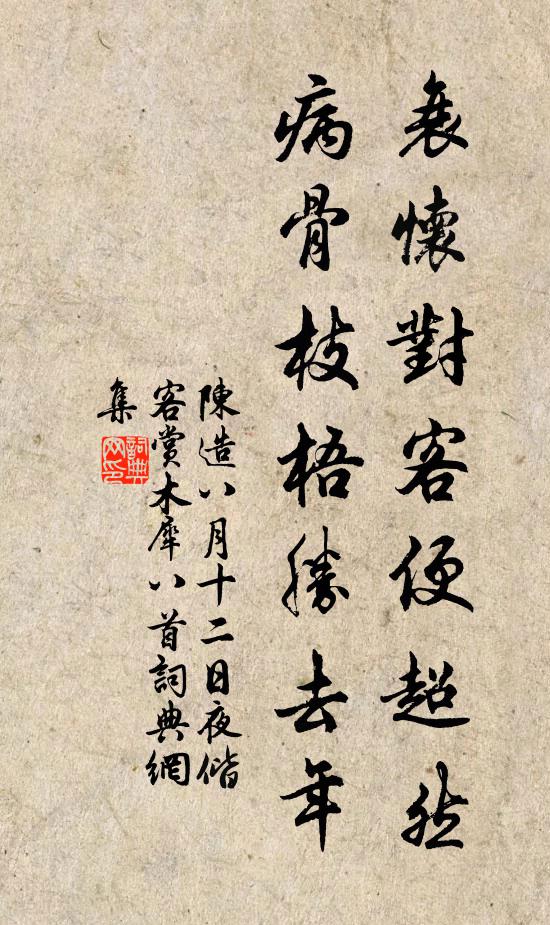 衰懷對客便超然
病骨枝梧勝去年
陳造八月十二日夜偕
客賞木犀八首詞典網
集
詞典網印